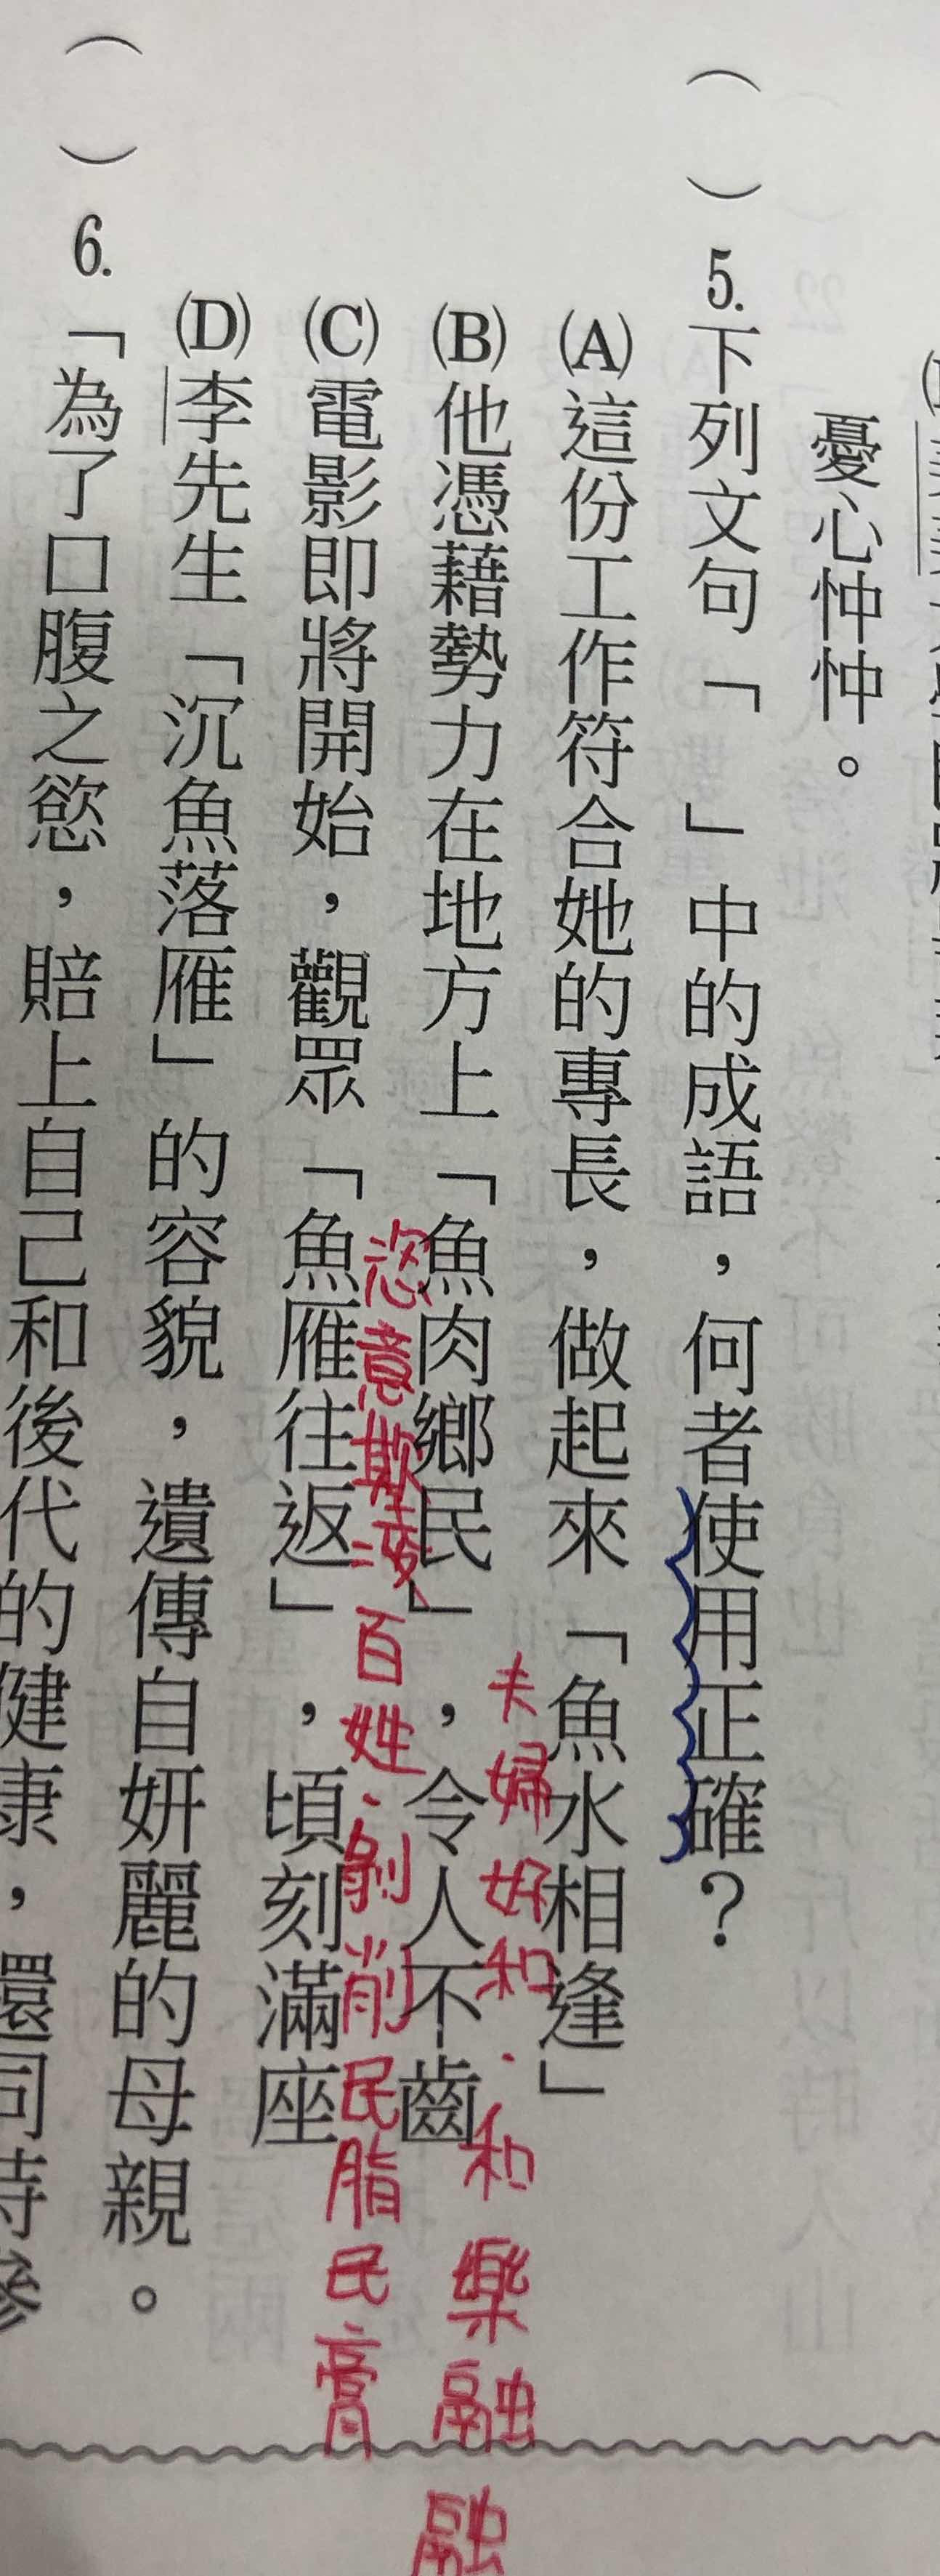 憂心忡忡。
（　）5.下列文句「　」中的成語，何者使用正確？
(A)這份工作符合她的專長，做起來「魚水相逢」
夫婦好和．和樂融融
(B)他憑藉勢力在地方上「魚肉鄉民」，令人不齒
恣意欺凌百姓、剝削民脂民膏
(C)電影即將開始，觀眾「魚雁往返」，頃刻滿座
(D)李先生「沉魚落雁」的容貌，遺傳自妍麗的母親。
（　）6.「為了口腹之慾，賠上自己和後代的健康，還同時參